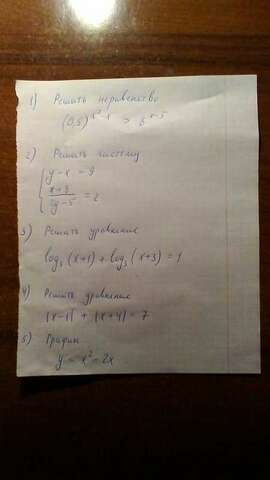 1) Решить неравенство
2) Решить систему
{ y-x = 9
x+3
= 2
3) Решить уравнение
log₃(x+1) + log₃(x+3) = 1
4) Решить уравнение
|x-1| + |x+4| = 7
5) График
y = x² - 2x